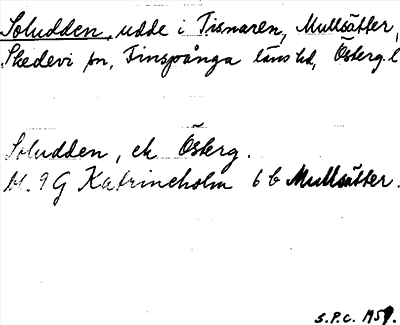 Soludden, udde i Tisnaren, Mullsätter,
Skedevi sn, Finspånga läns hd, Österg. l
Soludden, ek Österg.
bl. 9 G Katrineholm 6 b Mullsätter.
S.P.C. 1959.